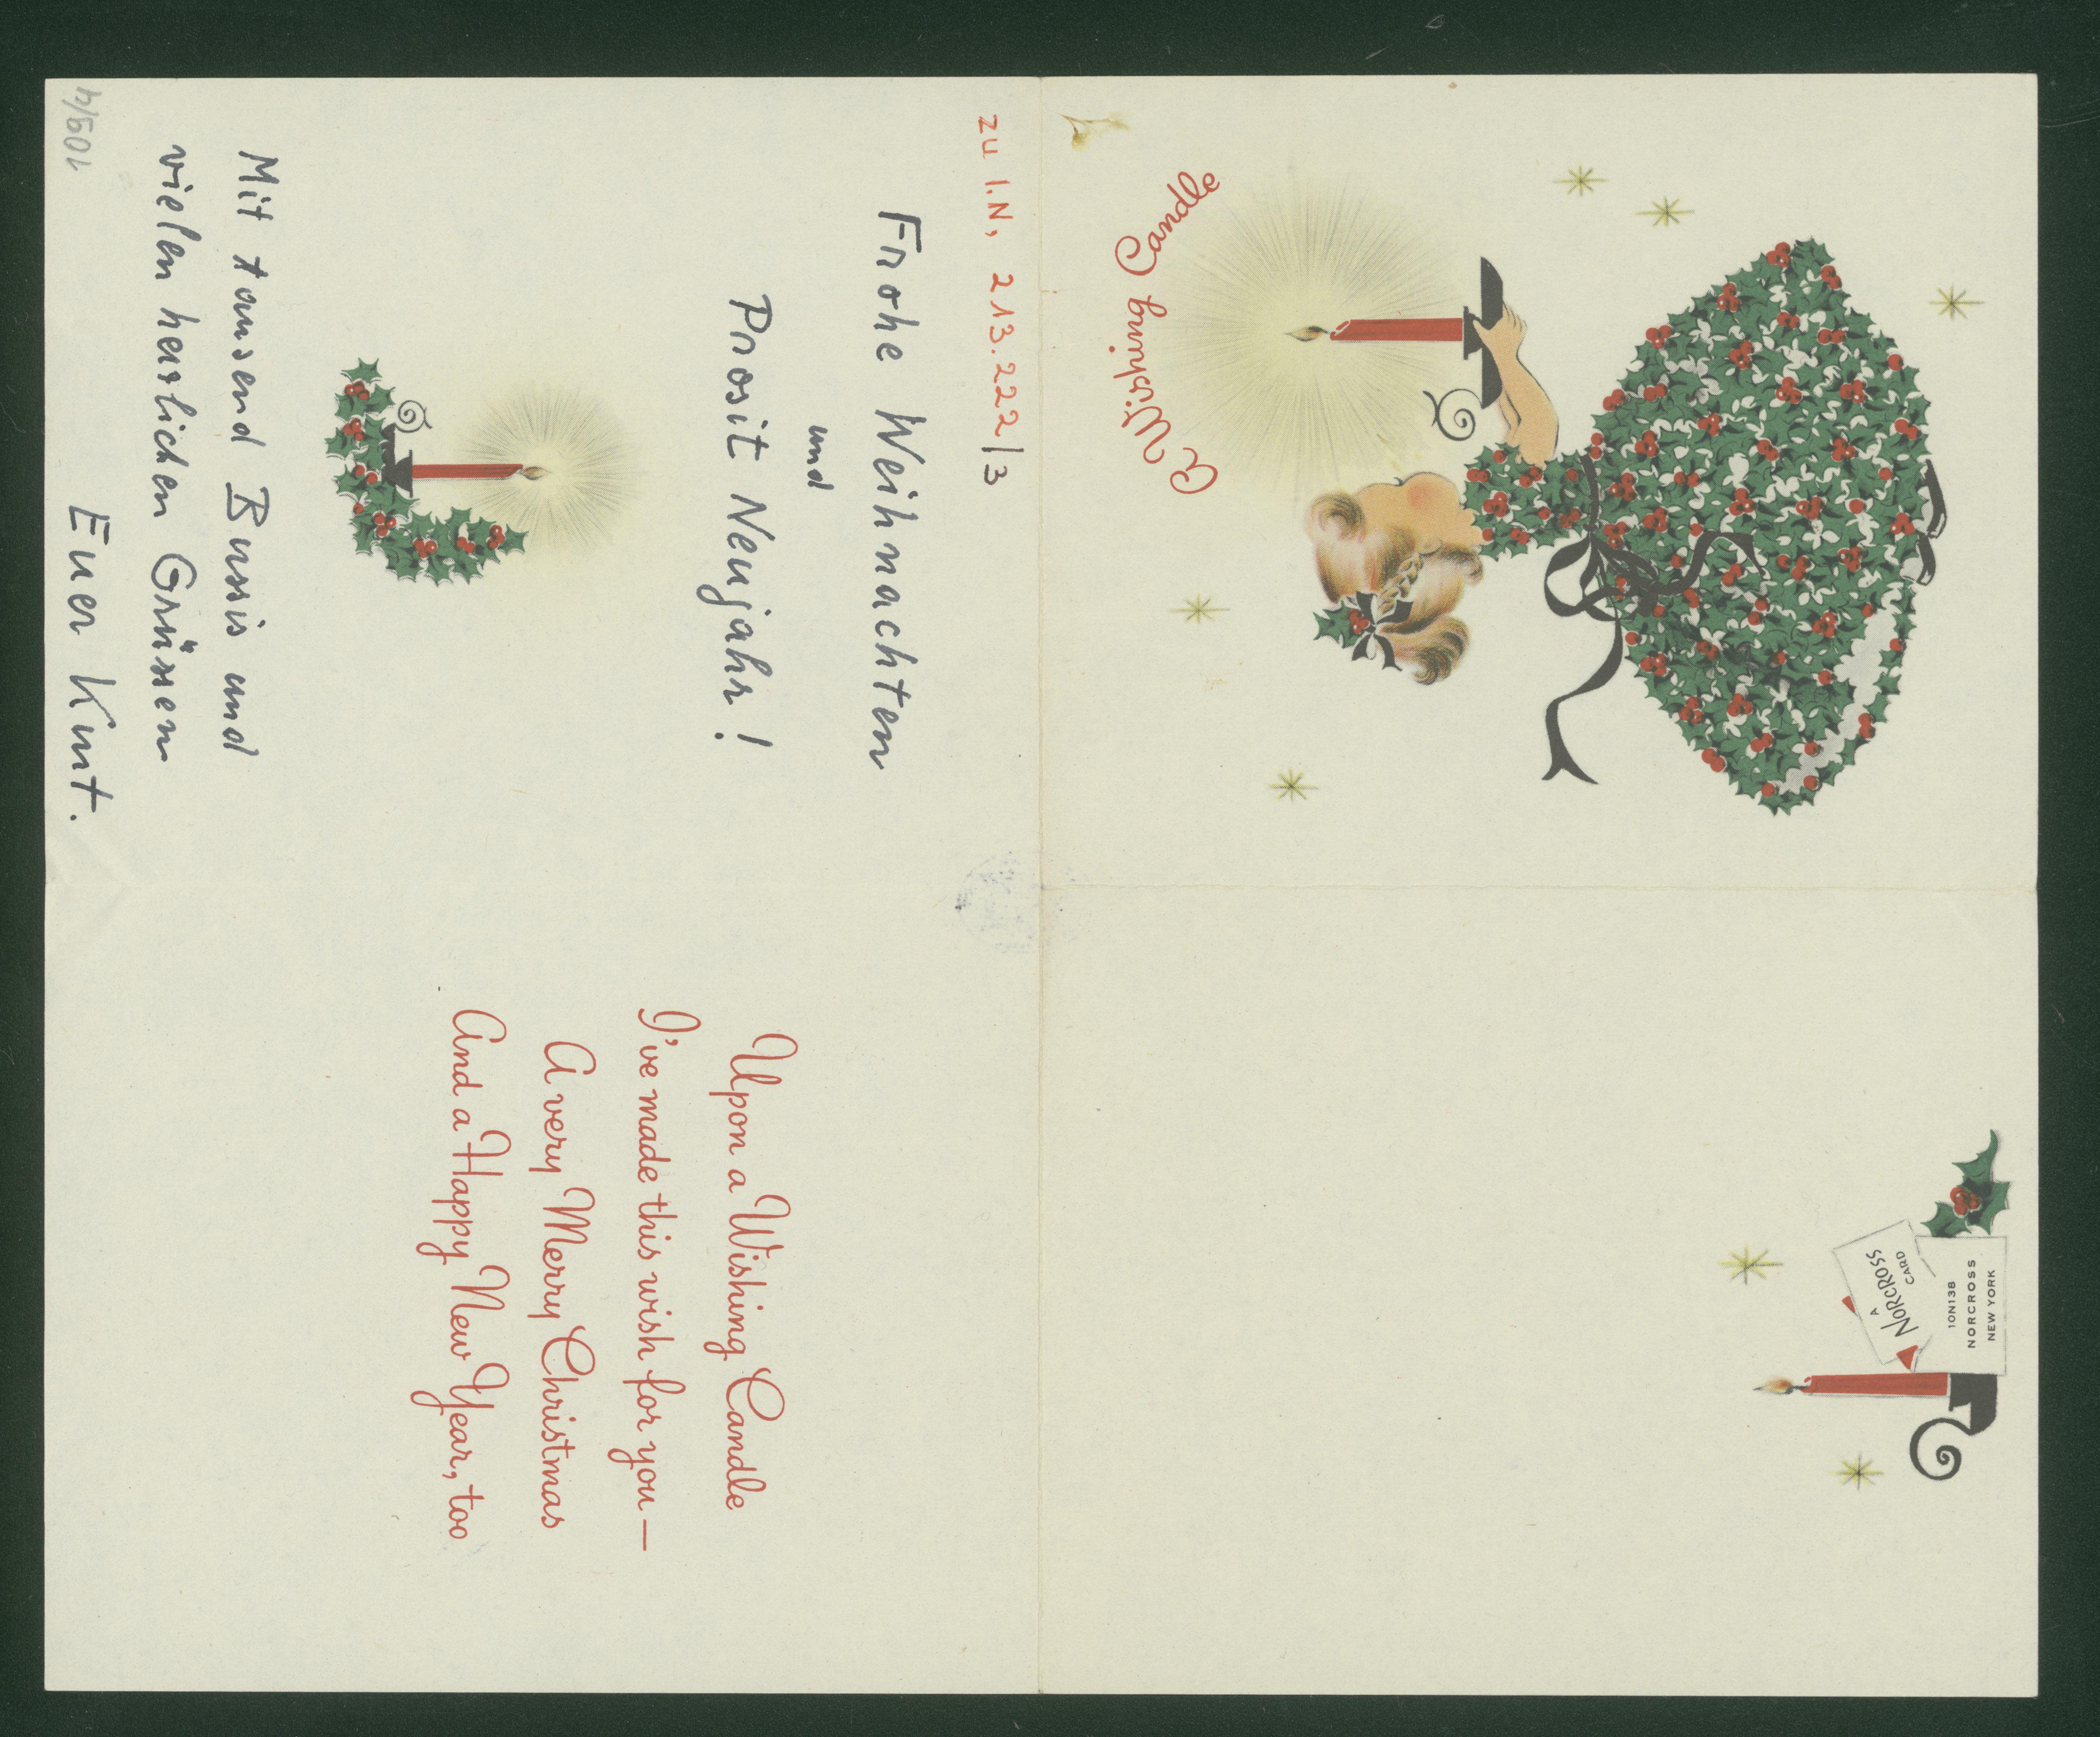 zu I.N, 213.222/3
Frohe Weihnachten
und
Prosit Neujahr!
Mit tausend Bussis und
vielen herzlichen Grüssen
Euer Kurt.
109/4
Upon a Wishing Candle
I've made this wish for you—
A very Merry Christmas
And a Happy New Year, too
A Wishing Candle
A
NORCROSS
CARD
10N138
NORCROSS
NEW YORK